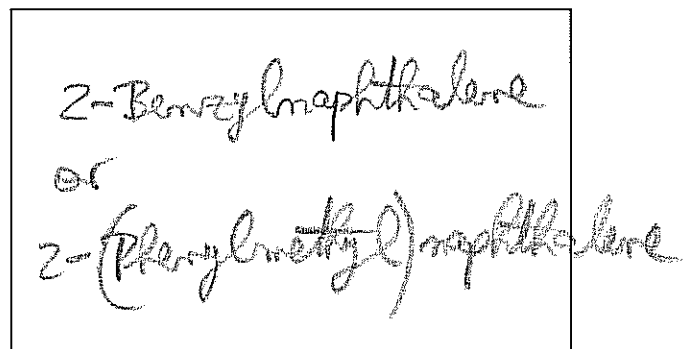 2-Benzylnaphthalene
or
2-(Phenylmethyl)naphthalene